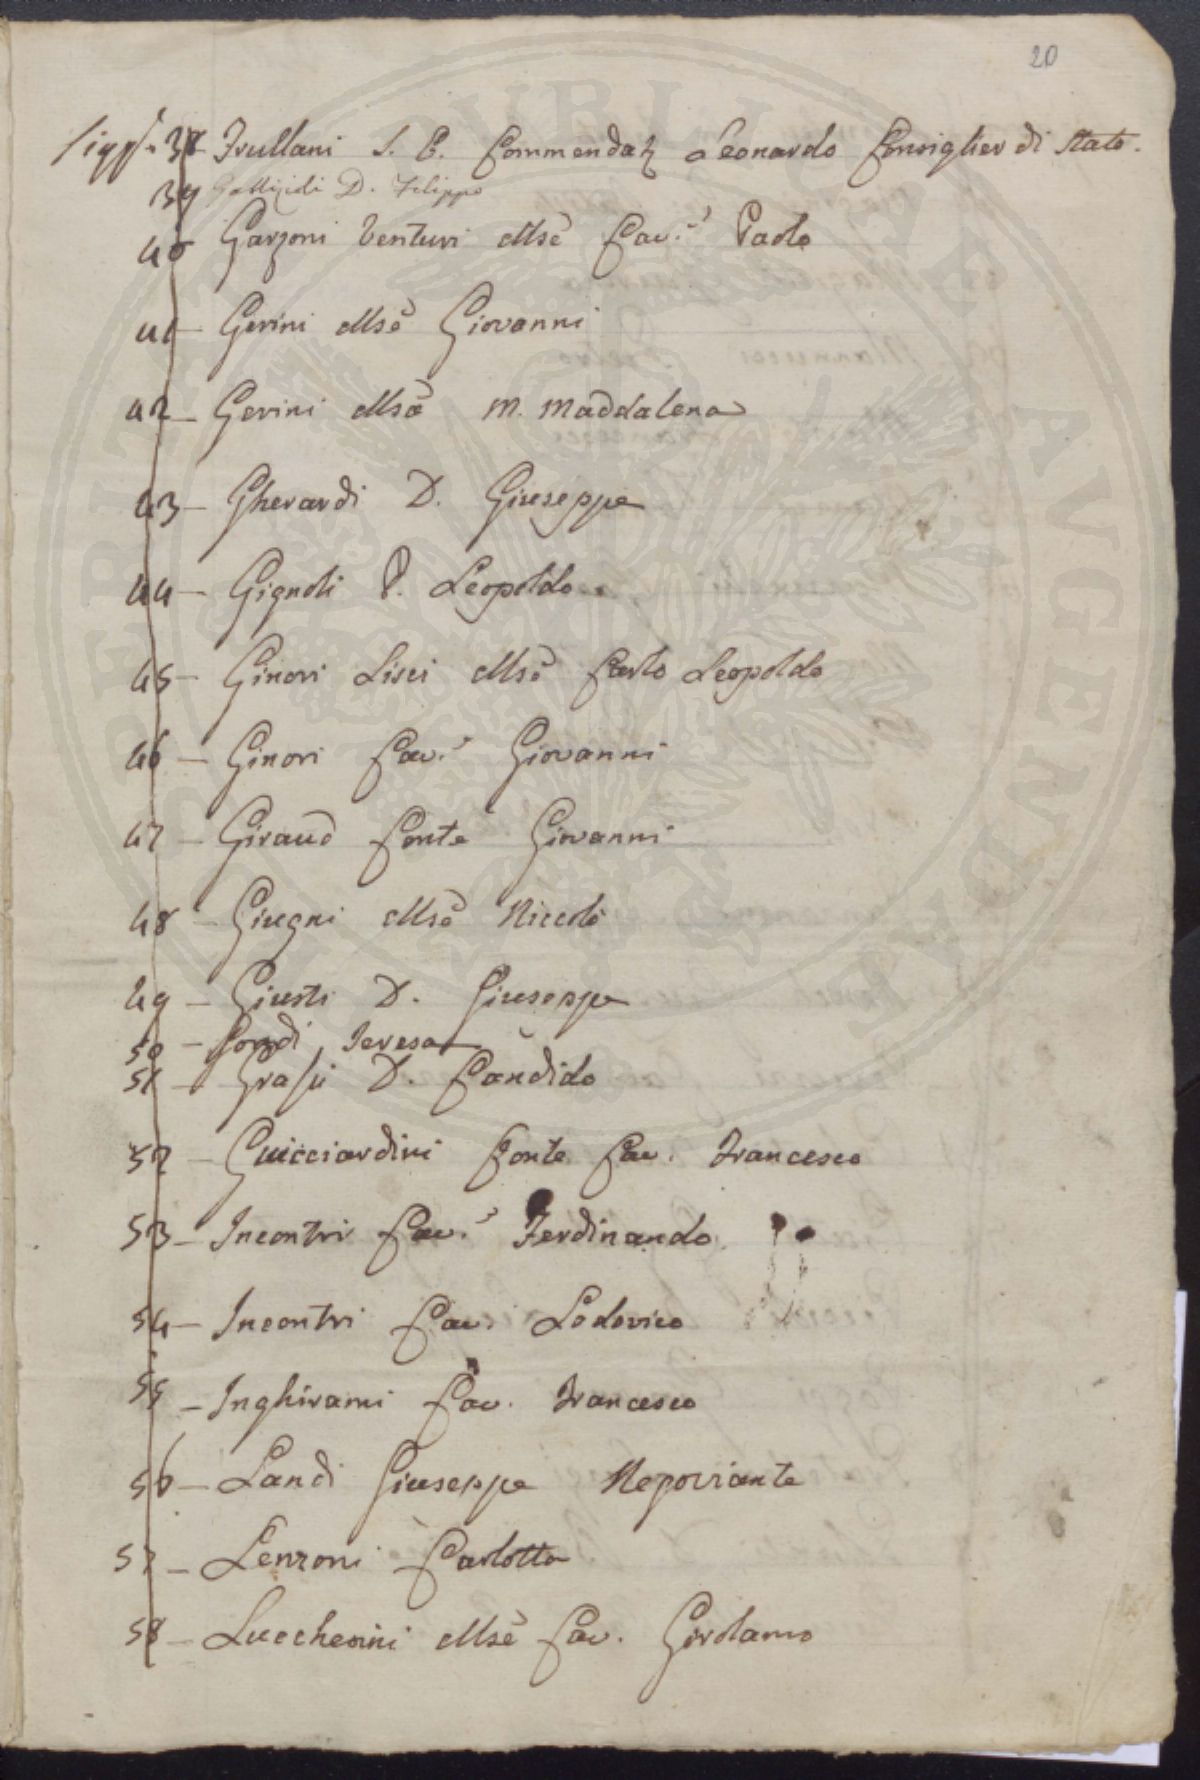 20
Sigg.ri 38 Frullani S. E. Commendat. Leonardo Consiglier di Stato.
39 Gallizidi D. Filippo
40 Garzoni Venturi Mse Cav.e Paolo
41 - Gerini Mse Giovanni
42 - Gerini Msa M. Maddalena
43 - Gherardi D. Giuseppe
44 - Gignoli P. Leopoldo
45 - Ginori Lisci Mse Carlo Leopoldo
46 - Ginori Cav.e Giovanni
47 - Giraud Conte Giovanni
48 - Giugni Mse Niccolò
49 - Giusti D. Giuseppe
50 - Gondi Teresa
51 - Grassi D. Candido
52 - Guicciardini Conte Cav. Francesco
53 - Incontri Cav.e Ferdinando
54 - Incontri Cav. Lodovico
55 - Inghirami Cav. Francesco
56 - Landi Giuseppe Negoziante
57 - Lenzoni Carlotta
58 - Lucchesini Mse Cav. Girolamo